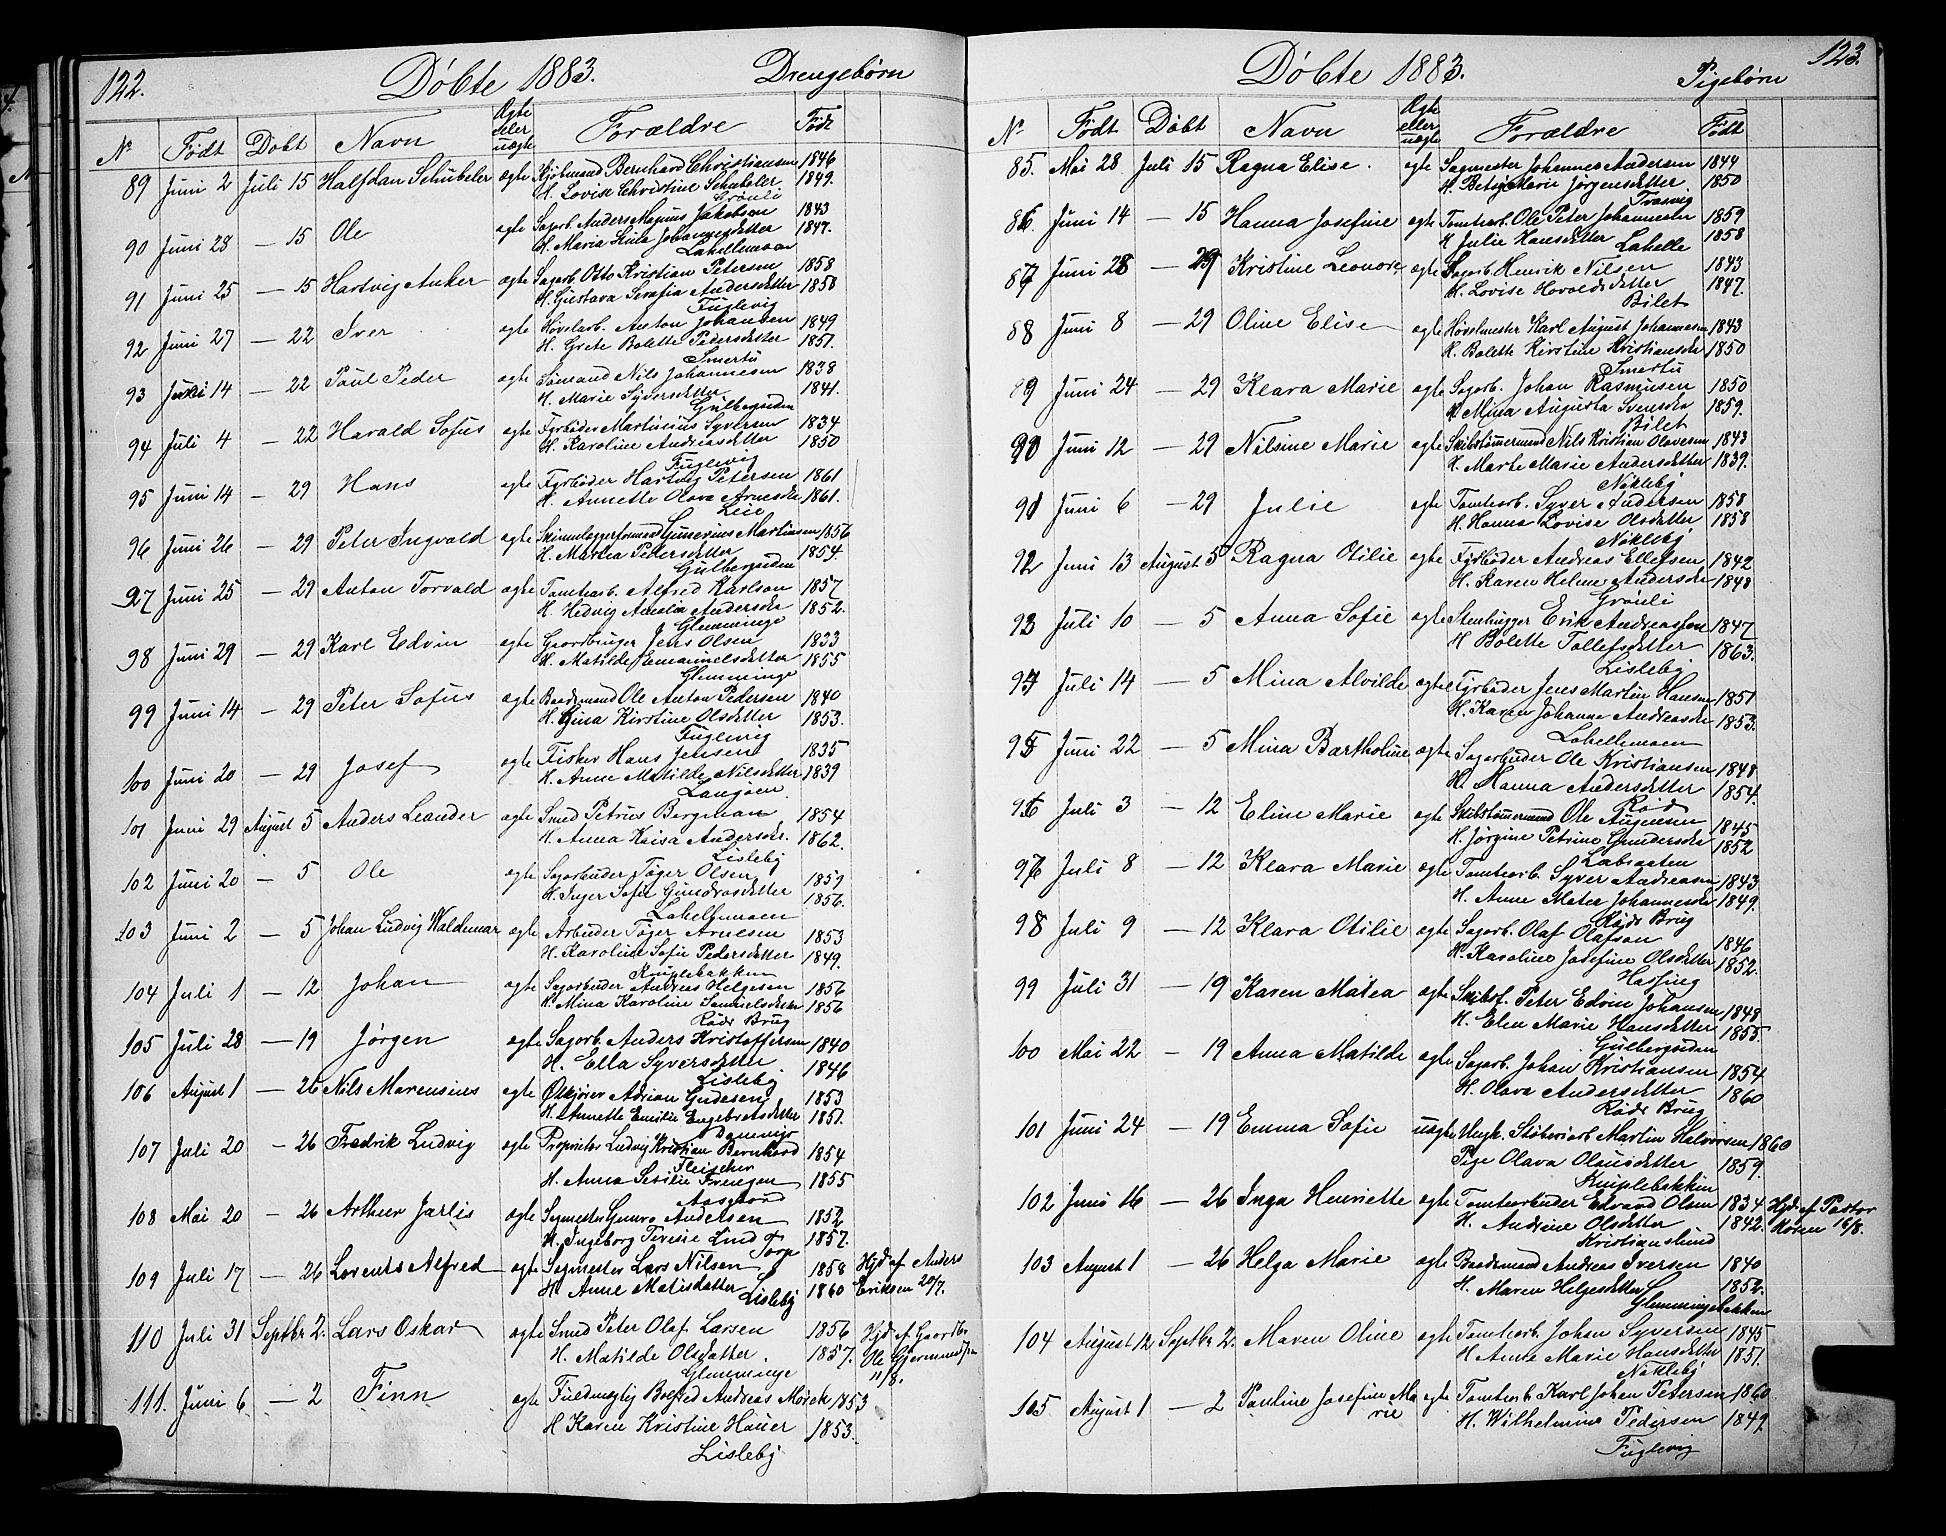 122. Døbte 1883. Drengebørn
No Født Døbt Navn Ægte eller uægte Forældre Født
89 Juni 2 Juli 15 Halfdan Schübeler ægte Kjøbmand Bernhard Christiansen 1846
H. Lovise Christine Schübeler 1849.
Grønli
90 Juni 28 — 15 Ole ægte Sagarb. Anders Magnus Jakobsen 1843
H. Maria Lina Johannesdatter 1847.
Lahellemoen
91 Juni 25 — 15 Hartvig Anker ægte Sagarb. Otto Kristian Petersen 1858
H. Gustava Serafia Andersdatter 1858
Fuglevig
92 Juni 27 — 22 Iver ægte Høvelarb. Anton Johansen 1849
H. Grete Bolette Pedersdatter 1851.
Smertu
93 Juli 14 — 22 Paul Peder ægte Sømand Nils Johannesen 1838
H. Marie Syversdatter 1841.
Gulbergsiden
94 Juli 4 — 22 Harald Sofus ægte Fyrbøder Martinius Syversen 1834
H. Karoline Andreasdatter 1850
Fuglevig
95 Juni 14 — 29 Hans ægte Fyrbøder Hartvig Petersen 1861
H. Annette Olava Arnesda 1861.
Leie
96 Juni 26 — 29 Peter Ingvald ægte Skinnelæggerformand Gunerius Martinsen 1856
H. Marthea Pedersdatter 1854.
Gulbergsiden
97 Juni 25 — 29 Anton Torvald ægte Tomtearb. Alfred Karlson 1857
H. Hedvig Amalia Andersda 1852.
Glemminge
98 Juni 29 — 29 Karl Edvin ægte Gaardbruger Jens Olsen 1833
H. Matilde Emanuelsdatter 1855
Glemminge
99 Juni 14 — 29 Peter Sofus ægte Baadsmand Ole Anton Pedersen 1840
H. Gina Kirstine Olsdatter 1853.
Fuglevig
100 Juni 20 — 29 Josef ægte Fisker Hans Jensen 1835
H. Anne Matilde Nilsdatter 1839
Langøen.
101 Juni 29 August 5 Anders Leander ægte Smed Petrus Bergman 1854
H. Anna Kaisa Andersda. 1862.
Lisleby
102 Juni 20 — 5 Ole ægte Sagarbeider Tøger Olsen 1859
H. Inger Sofie Gundrosdatter 1856.
Lahellemoen
103 Juni 2 — 5 Johan Ludvig Waldemar ægte Arbeider Tøger Arnesen 1853
H. Karoline Sofie Pedersdatter 1849.
Kniplebakken
104 Juli 1 — 12 Johan ægte Sagarbeider Andreas Helgesen 1856
H. Mina Karoline Samuelsdatter 1856
Røds Brug
105 Juli 28 — 19 Jørgen ægte Sagarb. Anders Kristoffersen 1840
H. Ella Syversdatter 1846
Lisleby
106 August 1 — 26 Nils Marensius ægte Østkjører Adrian Gudesen 1853
H. Annette Emilie Engebretsdatter 1851.
107 Juli 20 — 26 Fredrik Ludvig ægte Proprietær Ludvig Kristian Bernhard 1854
Fleischer
H. Anna Sesilie Svensen 1855
Aasgaard
108 Mai 20 — 26 Arthur Jarlis ægte Sagmester Gunro Andersen 1852
H. Ingeborg Terese Lind 1857.
Torp
109 Juli 17 — 26 Lorents Alfred ægte Sagmester Lars Nilsen 1858 Hjd af Anders
H. Anne Matisdatter 1860 Eriksen 20/7.
Lisleby
110 Juli 31 Septbr 2. Lars Oskar ægte Smed Peter Olaf Larsen 1856 Hjd af Gaardbr
H. Matilde Olsdatter 1857. Ole Gjermundsen
Glemminge 11/8.
111. Juni 6 — 2 Finn ægte Fuldmægtig Bolfred Andreas Mørch 1853
H Karen Kristine Hauer 1853.
Lisleby
Døbte 1883. Pigebørn 123.
No Født Døbt Navn Ægte eller uægte Forældre Født
85. Mai 28 Juli 15 Ragna Elise. ægte Sagmester Johannes Andersen 1844
H. Betsy Marie Jørgensdatter 1850
Trosvig
86 Juni 14 — 15 Hanna Josefine ægte Tomtearb. Ole Peter Johannesen 1859
H Julie Hansdatter 1858
Lahelle
87 Juni 28 — 29 Kristine Leonore ægte Sagarb. Henrik Nilsen 1843
H. Lovise Hovoldsdatter 1847.
Bilet
88 Juni 8 — 29 Oline Elise ægte Høvelmester Karl August Johannesen 1843
H. Bolette Kirstine Kristiansda 1850
Smertu
89 Juni 24 — 29 Klara Marie ægte Sagarb. Johan Rasmusen 1850
H. Mina Augusta Svensda 1859.
Bilet
90 Juni 12 — 29 Nilsine Marie ægte Skibstømmermand Nils Kristian Olavesen 1843
H. Marte Marie Andersdatter 1839.
Nøkleby
91 Juni 6 — 29 Julie ægte Tomtearb. Syver Andersen 1858
H. Hanna Lovise Olsdatter 1858
Nøkleby
92 Juni 13 August 5 Ragna Otilie ægte Fyrbøder Andreas Ellefsen 1842
H. Karen Helene Andersda 1848
Grønli
93 Juli 10 — 5 Anna Sofie ægte Stenhugger Erik Andreassen 1847
H Bolette Tollefsdatter 1863.
Lisleby
94 Juli 14 — 5 Mina Alvilde ægte Fyrbøder Jens Martin Hansen 1851
H. Karen Johanne Andreasda 1853.
Lahellemoen
95 Juni 22 — 5 Mina Bartholine ægte Sagarbeider Ole Kristiansen 1848
H. Hanna Andersdatter 1854.
Rød
96 Juli 3 — 12 Eline Marie ægte Skibstømmermand Ole Augensen 1845
H. Jørgine Petrine Gundersda 1852
97 Juli 8 — 12 Klara Marie ægte Tomtearb. Syver Andreasen 1843
H. Anne Mater Johannesda 1849.
Røds Brug
98 Juli 9 — 12 Klara Otilie ægte Sagarb. Olaf Olafson 1846
H. Karoline Josefine Olsdatter 1852.
99 Juli 31 — 19 Karen Matea ægte Skibsf. Peter Edvin Johansen 1848
H. Elen Marie Hansdatter 1855.
Gulbergsiden
100 Mai 22 — 19 Anna Matilde ægte Sagarb. Johan Kristiansen 1854
H. Olava Andersdatter 1860
Røds Brug
101 Juni 24 — 19 Emma Sofie uægte Ungk. Støberiarb Martin Halvorsen 1860
Pige Olava Olausdatter 1859.
Kniplebakken
102 Juni 16 — 26 Inga Henriette ægte Tomtearbeider Edvard Olsen 1834 Hjd. af Pastor
H. Andrine Olsdatter 1842. Koren 16/8.
Kristianslund
103 August 1 — 26 Helga Marie ægte Baadsmand Andreas Iversen 1840
H. Maren Helgesdatter 1852.
Glemmingebakken
104 August 12 Septbr 2. Maren Oline ægte Tomtearb. Johan Syversen 1845
H Anne Marie Hansdatter 1851.
Nøkleby
105 August 1 — 2 Pauline Josefine Ma ægte Tomtearb Karl Johan Petersen 1860
rie H. Wilhelmine Pedersen 1849.
Fuglevig